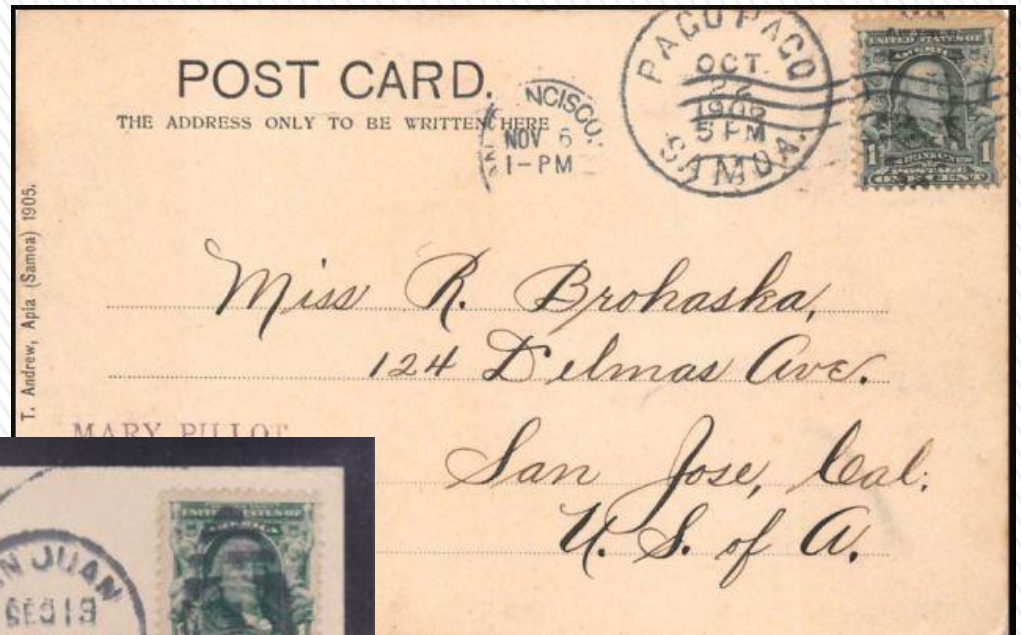 POST CARD.
THE ADDRESS ONLY TO BE WRITTEN HERE
NCISCO.
NOV 6
1-PM
PAGO PAGO
OCT.
1906
5 PM
SAMOA.
UNITED STATES OF
AMERICA
1 1
POSTAGE
ONE CENT
T. Andrew, Apia (Samoa) 1905.
Miss R. Brohaska,
124 Delmas Ave.
San Jose, Cal.
U. S. of A.
MARY PILLOT
N JUAN
DEC 13
UNITED STATES OF
AMERICA